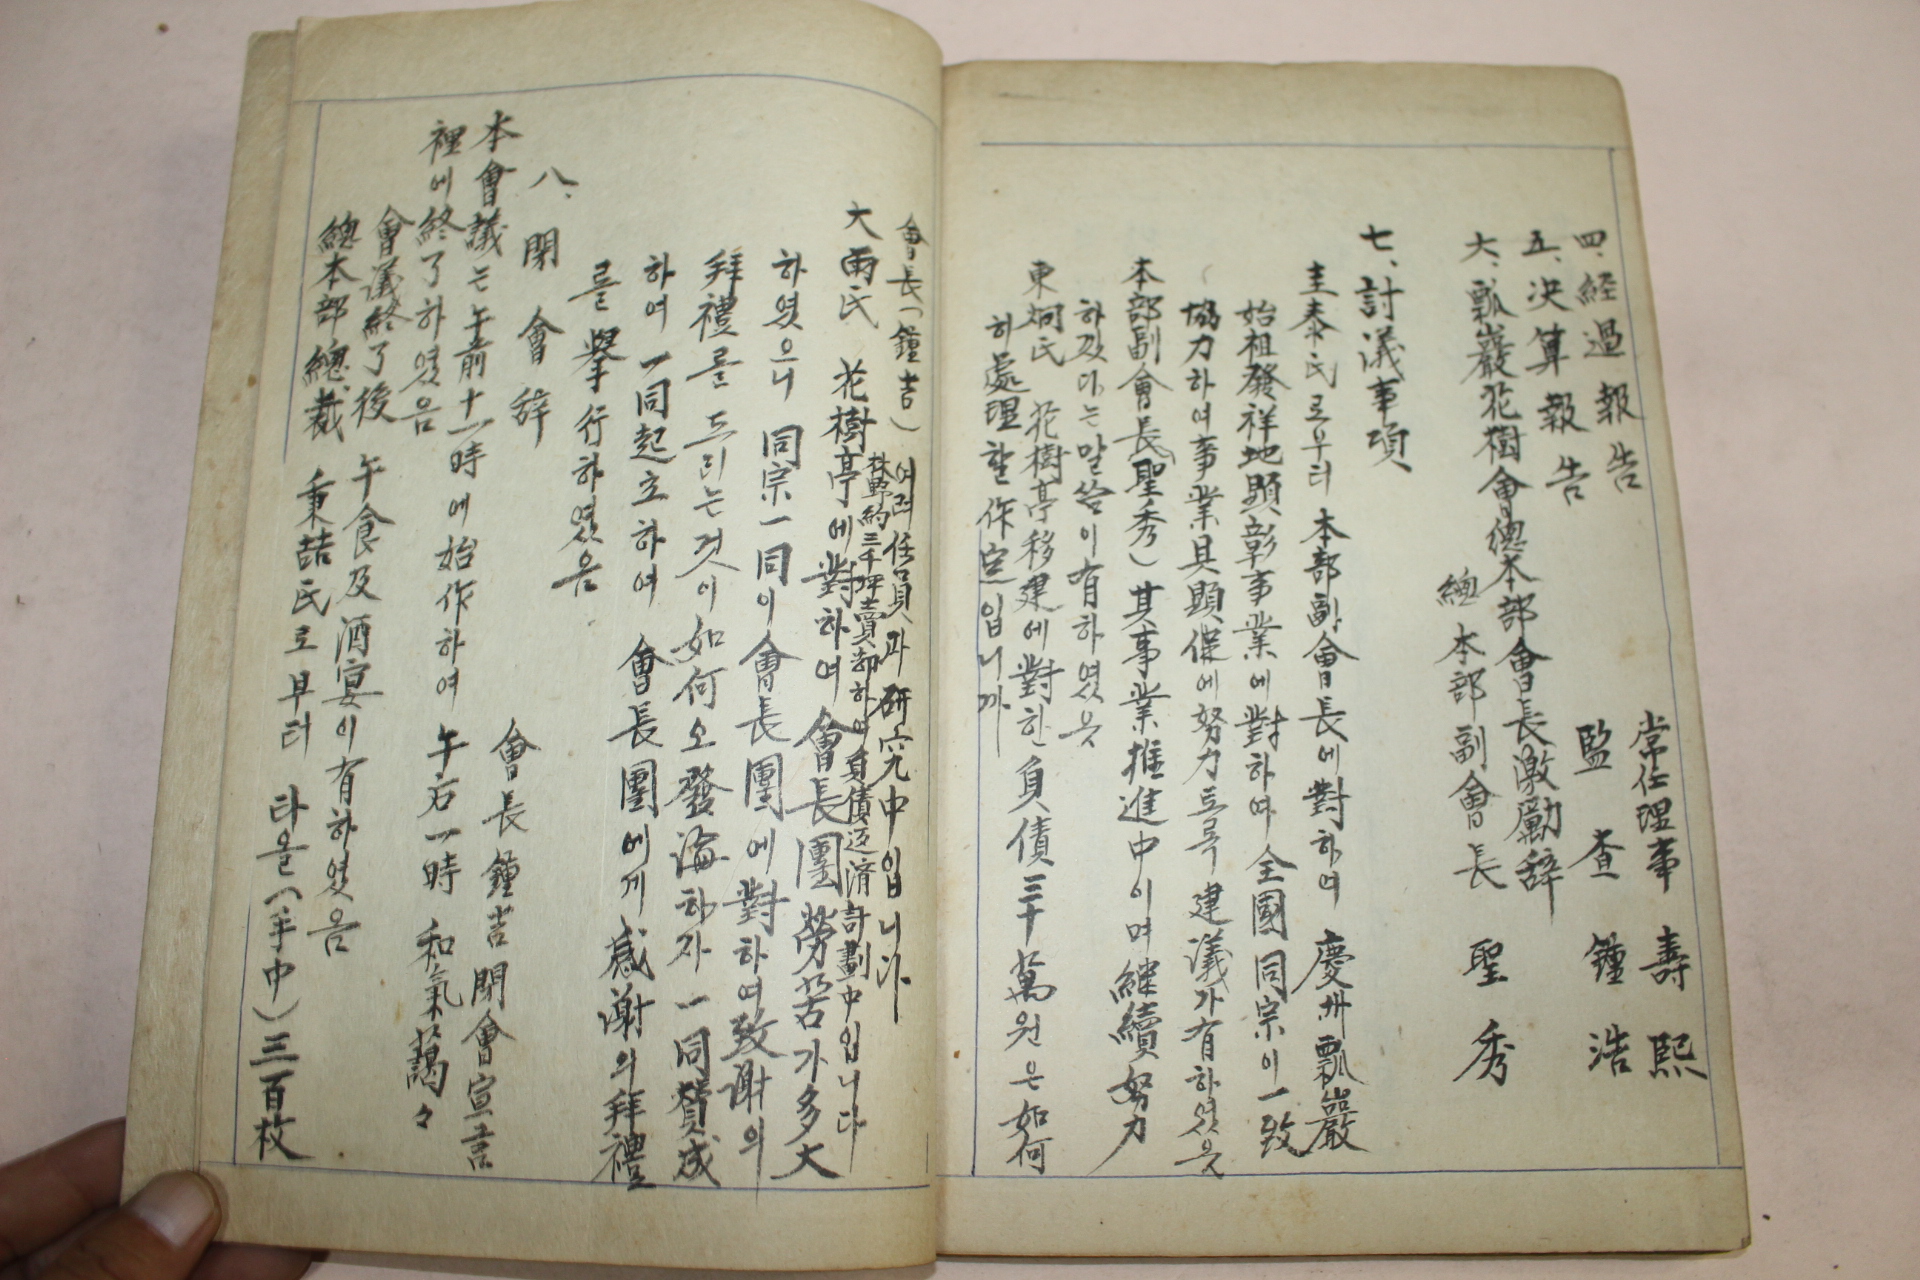 四. 經過報告 常任理事 壽熙
五. 決算報告 監査 鍾浩
六. 瓢巖花樹會總本部會長激勵辞
總本部副會長 聖秀
七. 討議事項
圭泰氏로부터 本部副會長에 對하여 慶州瓢巖
始祖發祥地顯彰事業에 對하여 全國同宗이 一致
協力하여 事業具顯促에 努力토록 建議가 有하였읏
本部副會長(聖秀) 其事業推進中이며 繼續努力
하겠다는 말씀이 有하였읏
東炯氏 花樹亭移建에 對한 負債三十萬원은 如何
히 處理할 作定입니까
會長(鍾吉) 여러 任員과 硏究中입니다
林野約三千坪賣却하여 負債返済計劃中입니다
大雨氏 花樹亭에 對하여 會長團 勞苦가 多大
하였으니 同宗一同이 會長團에 對하여 致謝의
拜禮를 드리는것이 如何오 發論하자 一同賛成
하여 一同起立하여 會長團에게 感謝의 拜禮
를 擧行하였음
八. 閉會辞 會長 鍾吉 閉會宣言
本會議는 午前十一時에 始作하여 午后一時 和氣藹々
裡에 終了하였음
會議終了後 午食及酒宴이 有하였음
總本部總裁 秉喆氏로부터 타올(手巾)三百枚